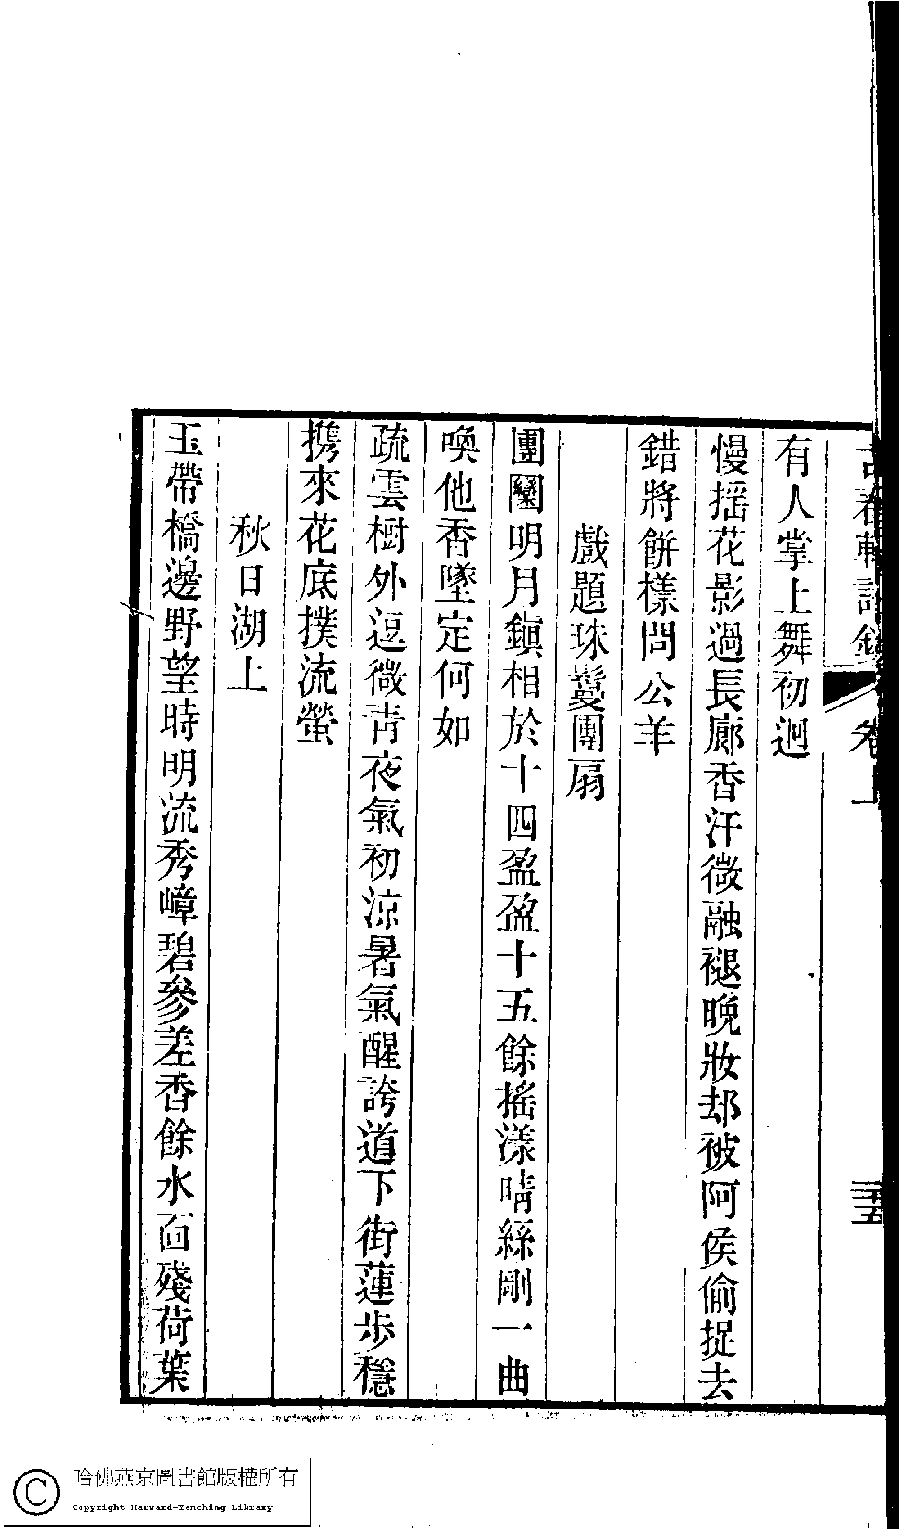 卷上
三五
有人掌上舞初迴
慢摇花影過長廊香汗微融褪晚妝却被阿侯偷捉去
錯將餅樣問公羊
戲題珠鬘團扇
團圞明月鎭相於十四盈盈十五餘摇漾晴絲剛一曲
喚他香墜定何如
疏雲樹外逗微靑夜氣初涼暑氣醒誇道下街蓮步穩
携來花底撲流螢
秋日湖上
玉帶橋邊野望時明流秀嶂碧參差香餘水面殘荷葉
哈佛燕京圖書館版權所有
Copyright Harvard-Yenching Library